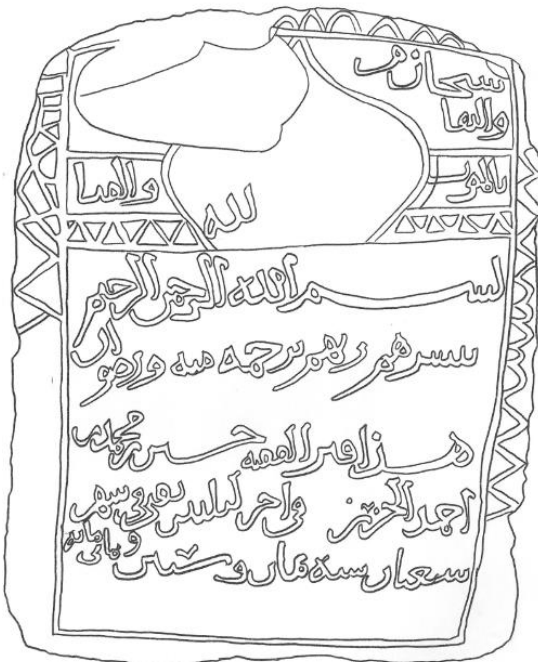 سبحان من
والبقا
بالموت والفنا
لله
بسم الله الرحمن الرحيم
يبشرهم ربهم برحمه منه ورضوان
هذا قبر الفقيه حسن بن محمد بن
احمد شهر
شعبان سنه ثمان وستين وثماني مايه